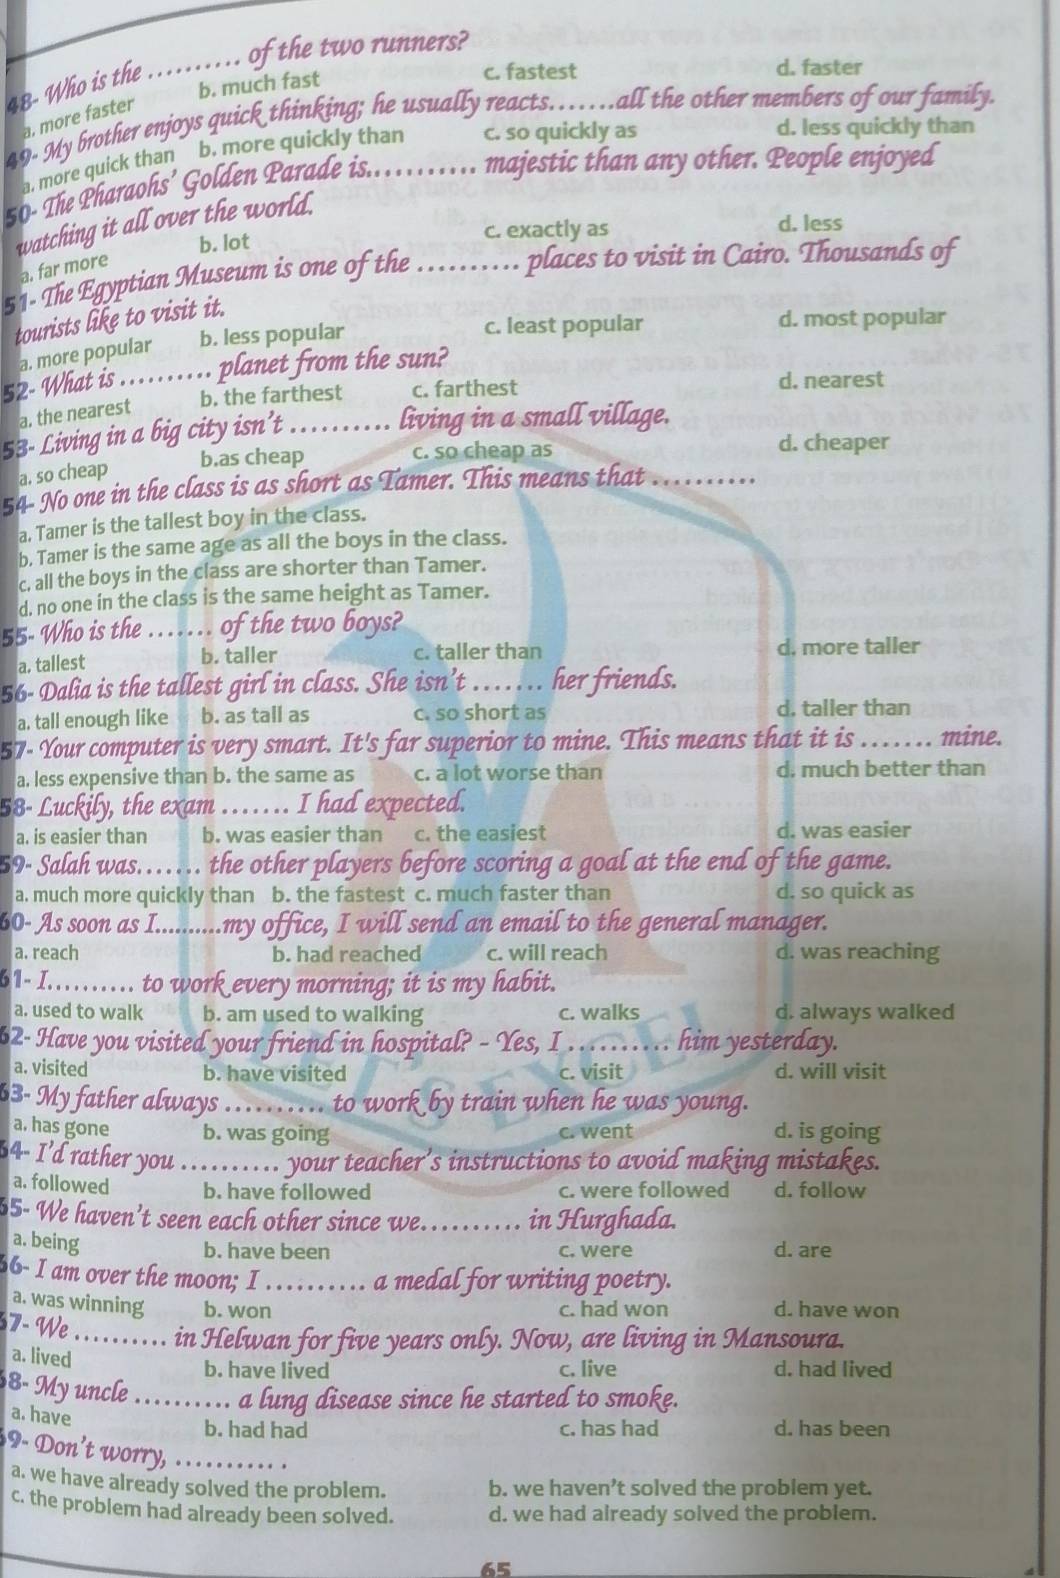 48- Who is the .......... of the two runners?
a. more faster b. much fast c. fastest d. faster
49- My brother enjoys quick thinking; he usually reacts.......all the other members of our family.
a. more quick than b. more quickly than c. so quickly as d. less quickly than
50- The Pharaohs' Golden Parade is............ majestic than any other. People enjoyed
watching it all over the world.
a. far more b. lot c. exactly as d. less
51- The Egyptian Museum is one of the ........... places to visit in Cairo. Thousands of
tourists like to visit it.
a. more popular b. less popular c. least popular d. most popular
52- What is .......... planet from the sun?
a. the nearest b. the farthest c. farthest d. nearest
53- Living in a big city isn't ........... living in a small village.
a. so cheap b.as cheap c. so cheap as d. cheaper
54- No one in the class is as short as Tamer. This means that ...........
a. Tamer is the tallest boy in the class.
b. Tamer is the same age as all the boys in the class.
c. all the boys in the class are shorter than Tamer.
d. no one in the class is the same height as Tamer.
55- Who is the ....... of the two boys?
a. tallest b. taller c. taller than d. more taller
56- Dalia is the tallest girl in class. She isn't ....... her friends.
a. tall enough like b. as tall as c. so short as d. taller than
57- Your computer is very smart. It's far superior to mine. This means that it is ....... mine.
a. less expensive than b. the same as c. a lot worse than d. much better than
58- Luckily, the exam ....... I had expected.
a. is easier than b. was easier than c. the easiest d. was easier
59- Salah was....... the other players before scoring a goal at the end of the game.
a. much more quickly than b. the fastest c. much faster than d. so quick as
60- As soon as I..........my office, I will send an email to the general manager.
a. reach b. had reached c. will reach d. was reaching
61- I.......... to work every morning; it is my habit.
a. used to walk b. am used to walking c. walks d. always walked
62- Have you visited your friend in hospital? - Yes, I ........... him yesterday.
a. visited b. have visited c. visit d. will visit
63- My father always ........... to work by train when he was young.
a. has gone b. was going c. went d. is going
64- I'd rather you ........... your teacher's instructions to avoid making mistakes.
a. followed b. have followed c. were followed d. follow
65- We haven't seen each other since we........... in Hurghada.
a. being b. have been c. were d. are
66- I am over the moon; I ........... a medal for writing poetry.
a. was winning b. won c. had won d. have won
67- We .......... in Helwan for five years only. Now, are living in Mansoura.
a. lived b. have lived c. live d. had lived
68- My uncle ........... a lung disease since he started to smoke.
a. have b. had had c. has had d. has been
69- Don't worry, ............
a. we have already solved the problem. b. we haven't solved the problem yet.
c. the problem had already been solved. d. we had already solved the problem.
LET'S EXCEL
65